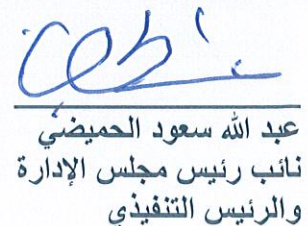 عبد الله سعود الحميضي
نائب رئيس مجلس الإدارة
والرئيس التنفيذي